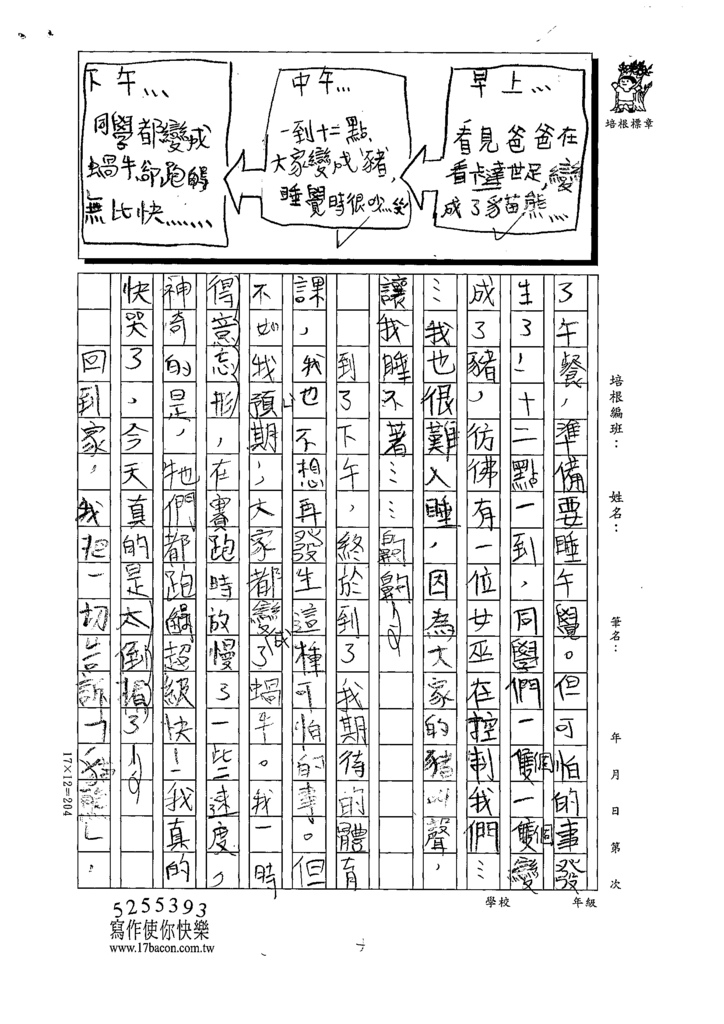 早上…
看見爸爸在
看卡達世足,變
成了貓熊…
中午…
一到十二點
大家變成豬,
睡覺時很吵
下午…
同學都變成
蝸牛,卻跑得
無比快……
培根標章
培根編班:
姓名:
筆名:
年 月 日 第 次
學校
年級
了午餐,準備要睡午覺。但可怕的事發
生了!十二點一到,同學們一隻個一隻個變
成了豬,彷彿有一位女巫在控制我們…
…我也很難入睡,因為大家的豬叫聲,
讓我睡不著……齁齁~
到了下午,終於到了我期待的體育
課,我也不想再發生這種可怕的事。但
不如我預期,大家都變成了蝸牛。我一時
得意忘形,在賽跑時放慢了一些速度,
神奇的是,牠們都跑得超級快!我真的
快哭了,今天真的是太倒楣了~
回到家,我把一切告訴「貓熊」,
17×12=204
5255393
寫作使你快樂
www.17bacon.com.tw